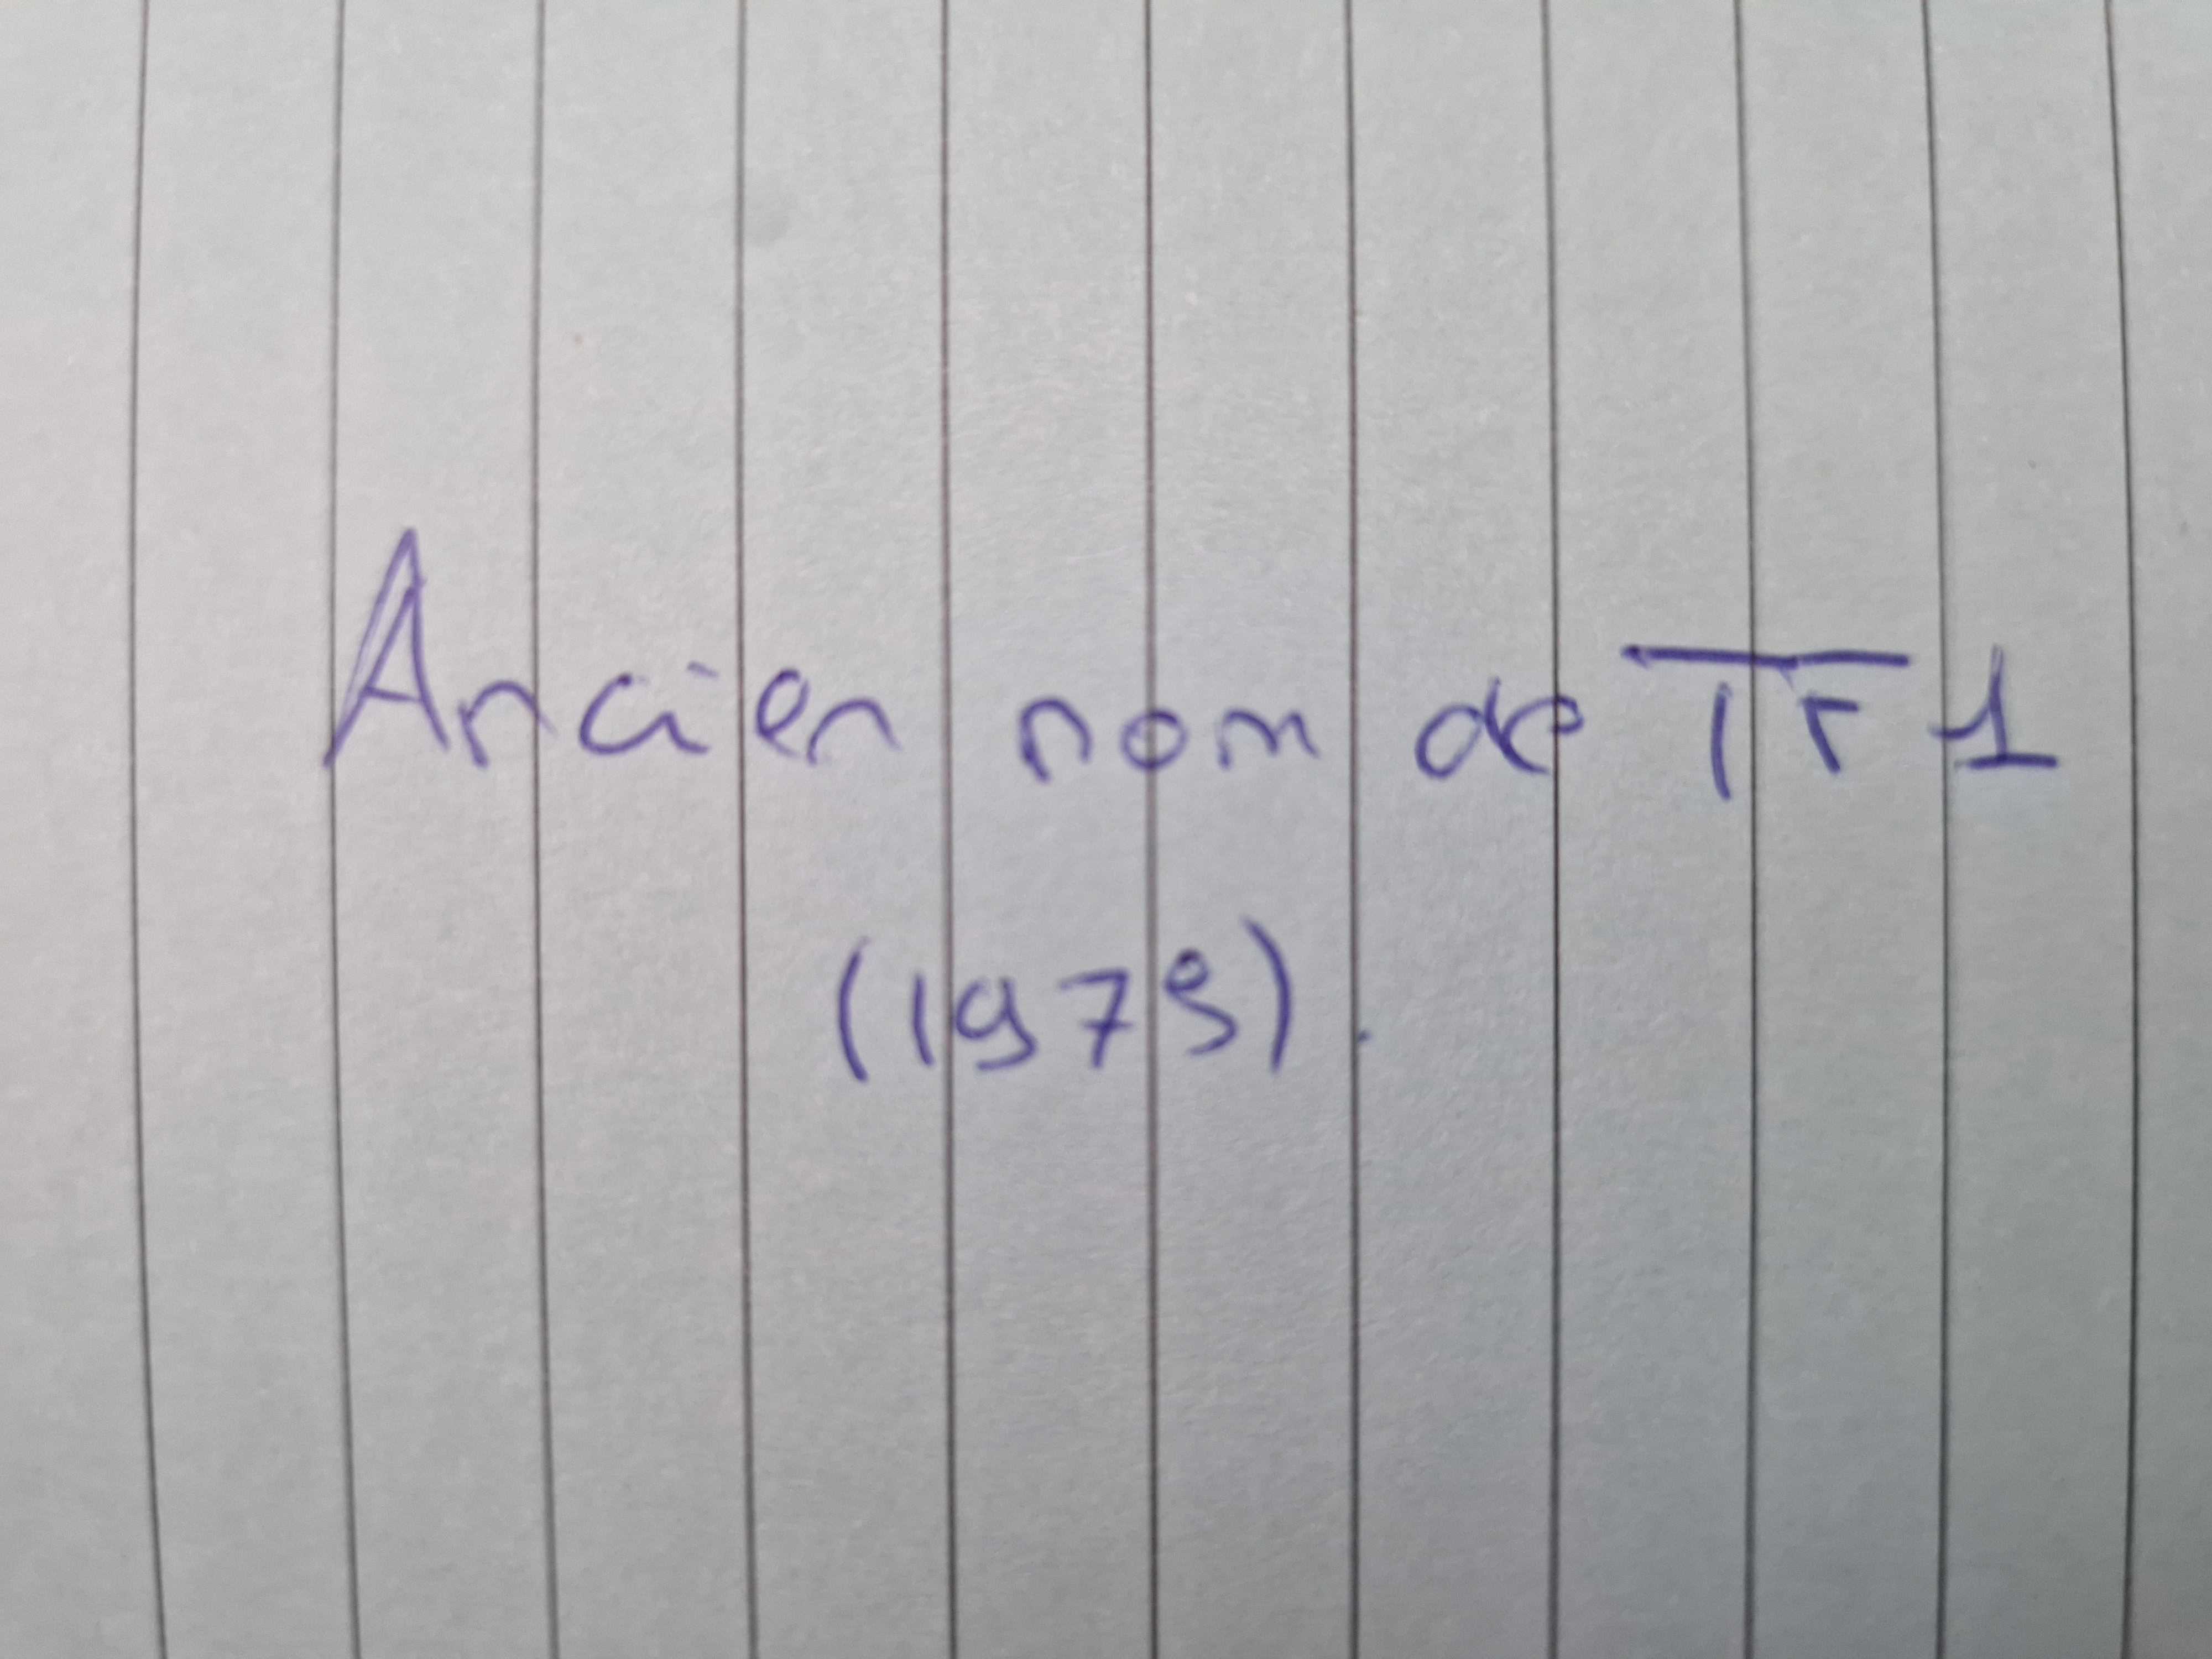 Ancien nom de TF1
(1979).